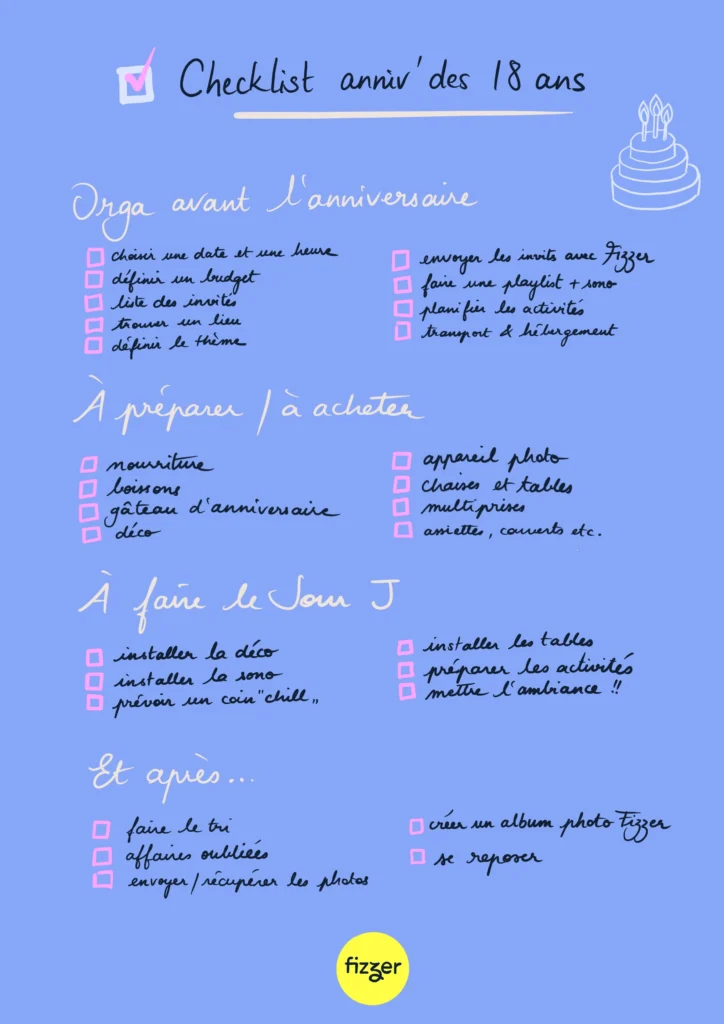 Checklist anniv' des 18 ans
Orga avant l'anniversaire
choisir une date et une heure
définir un budget
liste des invités
trouver un lieu
définir le thème
envoyer les invits avec Fizzer
faire une playlist + sono
planifier les activités
transport & hébergement
À préparer / à acheter
nourriture
boissons
gâteau d'anniversaire
déco
appareil photo
chaises et tables
multiprises
assiettes, couverts etc.
À faire le Jour J
installer la déco
installer la sono
prévoir un coin "chill"
installer les tables
préparer les activités
mettre l'ambiance !!
Et après...
faire le tri
affaires oubliées
envoyer/récupérer les photos
créer un album photo Fizzer
se reposer
fizzer